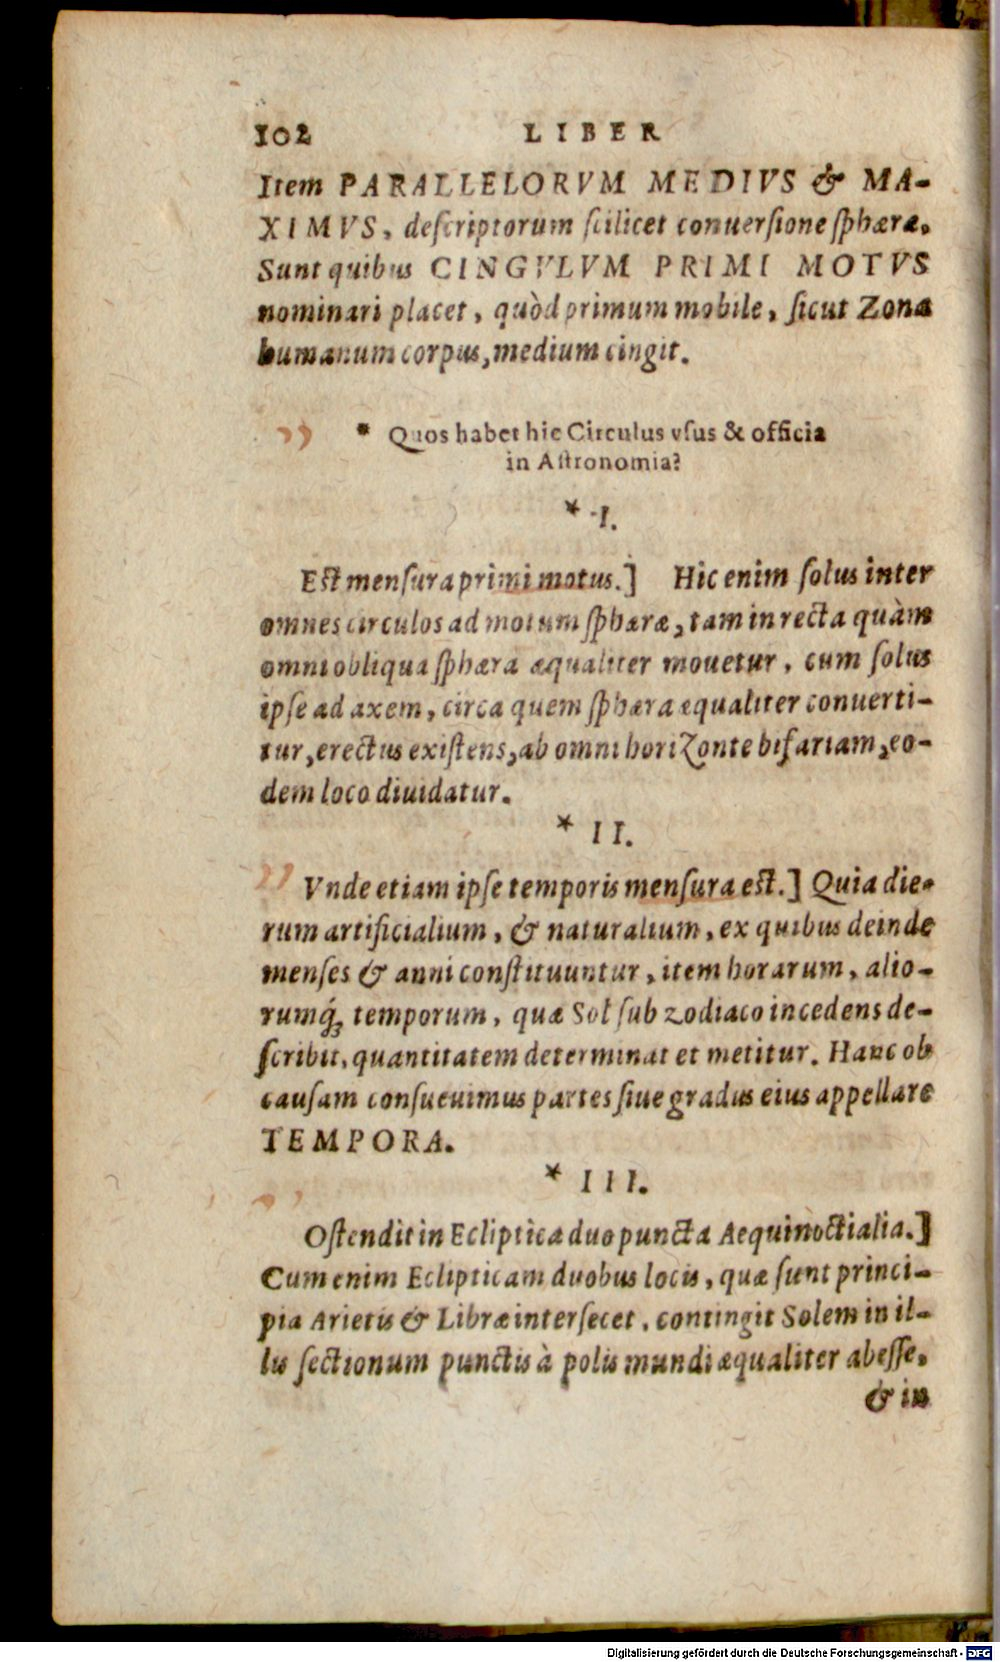 102 LIBER
Item PARALLELORVM MEDIVS & MA-
XIMVS, deſcriptorum ſcilicet conuerſione ſphæræ.
Sunt quibus CINGVLVM PRIMI MOTVS
nominari placet, quòd primum mobile, ſicut Zona
humanum corpus, medium cingit.
* Quos habet hic Circulus vſus & officia
in Aſtronomia?
* I.
Eſt menſura primi motus.] Hic enim ſolus inter
omnes circulos ad motum ſphæræ, tam in recta quàm
omni obliqua ſphæra æqualiter mouetur, cum ſolus
ipſe ad axem, circa quem ſphæra æqualiter conuerti-
tur, erectus exiſtens, ab omni horizonte bifariam, eo-
dem loco diuidatur.
* II.
Vnde etiam ipſe temporis menſura eſt.] Quia die-
rum artificialium, & naturalium, ex quibus deinde
menſes & anni conſtituuntur, item horarum, alio-
rumq́; temporum, quæ Sol ſub zodiaco incedens de-
ſcribit, quantitatem determinat et metitur. Hanc ob
cauſam conſueuimus partes ſiue gradus eius appellare
TEMPORA.
* III.
Oſtendit in Ecliptica duo puncta Aequinoctialia.]
Cum enim Eclipticam duobus locis, quæ ſunt princi-
pia Arietis & Libræ interſecet, contingit Solem in il-
lis ſectionum punctis à polis mundi æqualiter abeſſe,
& in
Digitalisierung gefördert durch die Deutsche Forschungsgemeinschaft - DFG